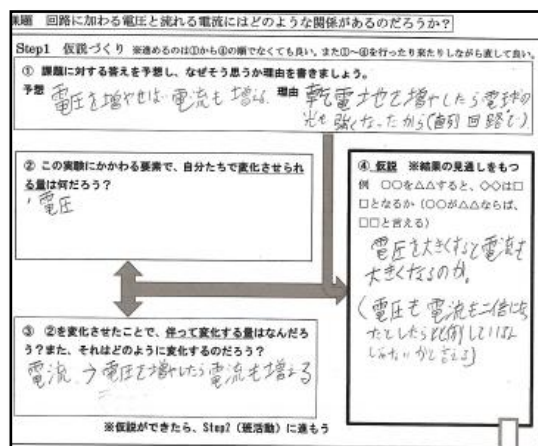 課題　回路に加わる電圧と流れる電流にはどのような関係があるのだろうか？
Step1　仮説づくり　※進めるのは①から④の順でなくても良い。また①～④を行ったり来たりしながら直して良い。
① 課題に対する答えを予想し、なぜそう思うか理由を書きましょう。
予想　電圧を増やせば電流も増える　理由　乾電池を増やしたら電球の
光も強くなったから（直列回路で）
② この実験にかかわる要素で、自分たちで変化させられ
る量は何だろう？
・電圧
③ ②を変化させたことで、伴って変化する量はなんだろ
う？また、それはどのように変化するのだろう？
電流 → 電圧を増やしたら電流も増える
④ 仮説　※結果の見通しをもつ
例　○○を△△すると、◇◇は□
□となるか（○○が△△ならば、
□□と言える）
電圧を大きくすると電流も
大きくなるのか。
（電圧も電流も二倍になっ
たとしたら比例しているん
じゃないかと言える）
※仮説ができたら、Step2（班活動）に進もう